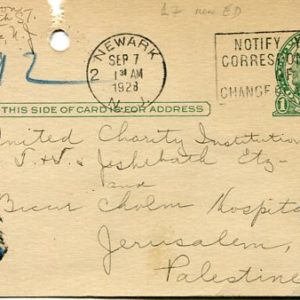 17 new ED
NEWARK
2
SEP 7
1 30 AM
1928
N. J.
NOTIFY
CORRES
CHANGE
THIS SIDE OF CARD IS FOR ADDRESS
1
United Charity Institution
Jeshebath Etz-
and
Bicur Cholm Hospita
Jerusalem,
Palestine